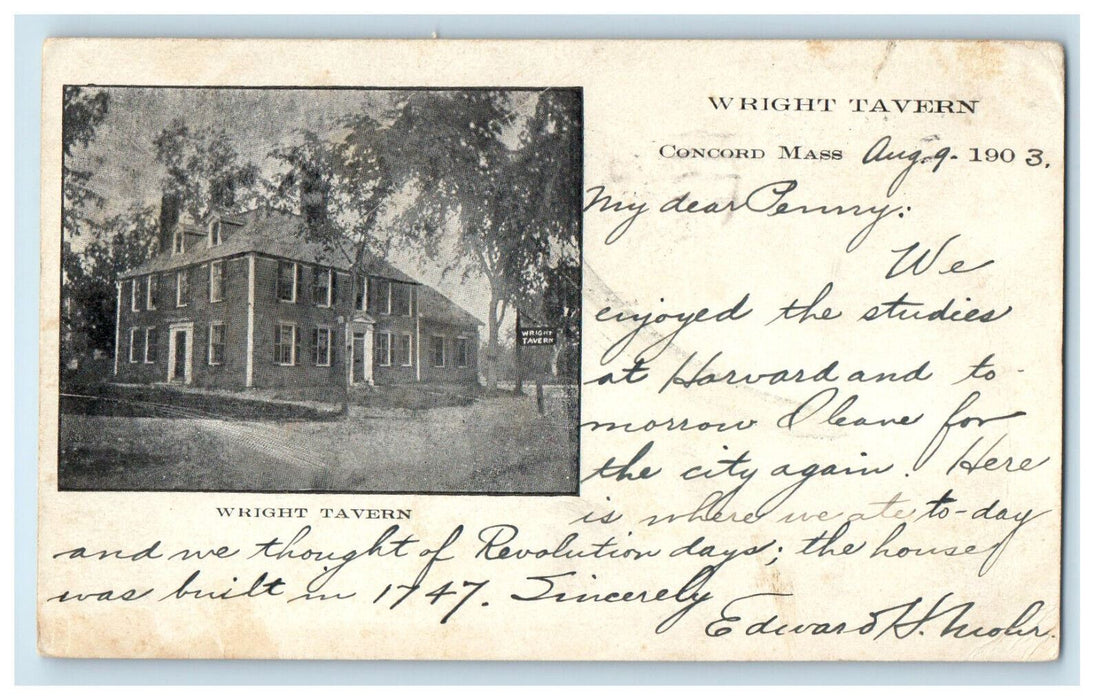 WRIGHT TAVERN
CONCORD MASS Aug. 9. 1903.
My dear Penny:
We
enjoyed the studies
at Harvard and to-
morrow I leave for
the city again. Here
is where we ate to-day
and we thought of Revolution days; the house
was built in 1747. Sincerely
Edward H. Mohr.
WRIGHT
TAVERN
WRIGHT TAVERN